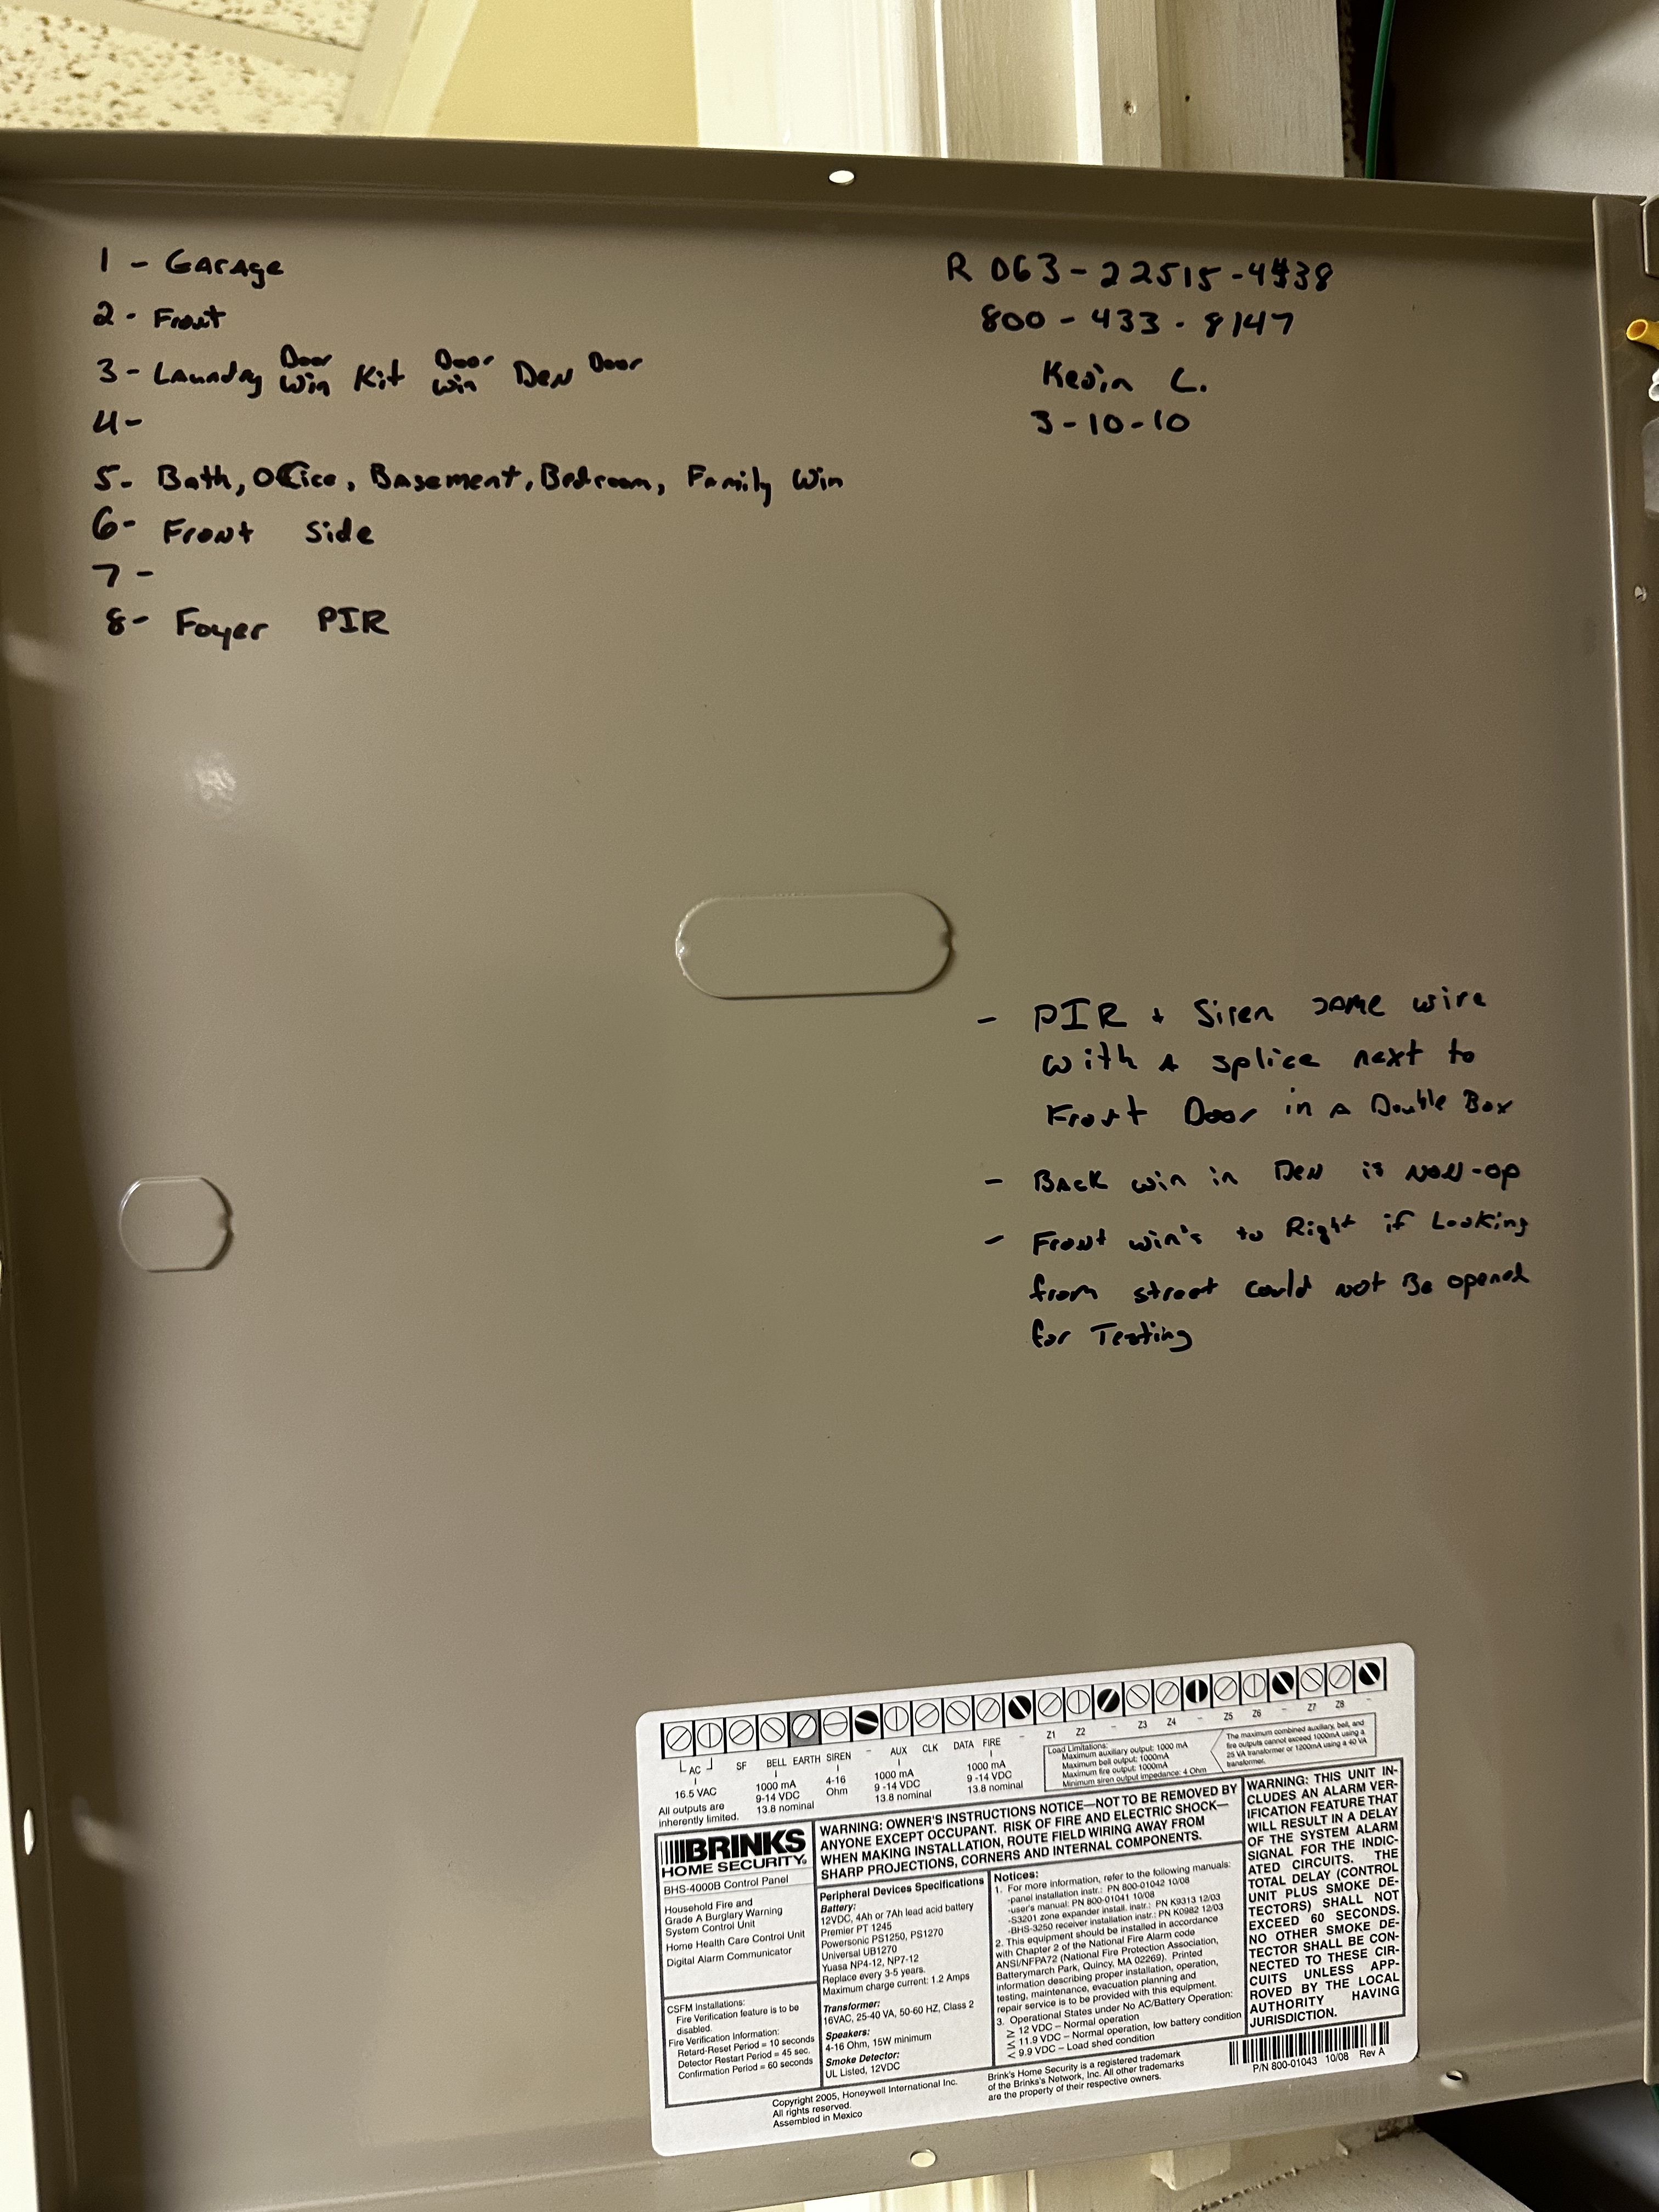 1 - Garage
2 - Front
3 - Laundry Door Win Kit Door Win Den Door
4 -
5 - Bath, Office, Basement, Bedroom, Family Win
6 - Front Side
7 -
8 - Foyer PIR
R 063-22515-4438
800-433-8147
Kevin C.
3-10-10
- PIR + Siren same wire
with a splice next to
Front Door in a Double Box
- Back win in Den is non-op
- Front win's to Right if Looking
from street could not Be opened
for Testing
Z1 Z2 - Z3 Z4 - Z5 Z6 - Z7 Z8 -
AC SF BELL EARTH SIREN - AUX CLK DATA FIRE -
16.5 VAC
1000 mA
9-14 VDC
13.8 nominal
4-16
Ohm
1000 mA
9 -14 VDC
13.8 nominal
1000 mA
9 -14 VDC
13.8 nominal
All outputs are
inherently limited.
Load Limitations:
Maximum auxiliary output: 1000 mA
Maximum bell output: 1000mA
Maximum fire output: 1000mA
Minimum siren output impedance: 4 Ohm
The maximum combined auxiliary, bell, and
fire outputs cannot exceed 1000mA using a
25 VA transformer or 1200mA using a 40 VA
transformer.
BRINKS
HOME SECURITY®
BHS-4000B Control Panel
Household Fire and
Grade A Burglary Warning
System Control Unit
Home Health Care Control Unit
Digital Alarm Communicator
CSFM Installations:
Fire Verification feature is to be
disabled.
Fire Verification Information:
Retard-Reset Period = 10 seconds
Detector Restart Period = 45 sec.
Confirmation Period = 60 seconds
WARNING: OWNER'S INSTRUCTIONS NOTICE—NOT TO BE REMOVED BY
ANYONE EXCEPT OCCUPANT. RISK OF FIRE AND ELECTRIC SHOCK—
WHEN MAKING INSTALLATION, ROUTE FIELD WIRING AWAY FROM
SHARP PROJECTIONS, CORNERS AND INTERNAL COMPONENTS.
Peripheral Devices Specifications
Battery:
12VDC, 4Ah or 7Ah lead acid battery
Premier PT 1245
Powersonic PS1250, PS1270
Universal UB1270
Yuasa NP4-12, NP7-12
Replace every 3-5 years.
Maximum charge current: 1.2 Amps
Transformer:
16VAC, 25-40 VA, 50-60 HZ, Class 2
Speakers:
4-16 Ohm, 15W minimum
Smoke Detector:
UL Listed, 12VDC
Notices:
1. For more information, refer to the following manuals:
-panel installation instr.: PN 800-01042 10/08
-user's manual: PN 800-01041 10/08
-S3201 zone expander install. instr.: PN K9313 12/03
-BHS-3250 receiver installation instr.: PN K0982 12/03
2. This equipment should be installed in accordance
with Chapter 2 of the National Fire Alarm code
ANSI/NFPA72 (National Fire Protection Association,
Batterymarch Park, Quincy, MA 02269). Printed
information describing proper installation, operation,
testing, maintenance, evacuation planning and
repair service is to be provided with this equipment.
3. Operational States under No AC/Battery Operation:
≥ 12 VDC – Normal operation
≤ 11.9 VDC – Normal operation, low battery condition
< 9.9 VDC – Load shed condition
WARNING: THIS UNIT IN-
CLUDES AN ALARM VER-
IFICATION FEATURE THAT
WILL RESULT IN A DELAY
OF THE SYSTEM ALARM
SIGNAL FOR THE INDIC-
ATED CIRCUITS. THE
TOTAL DELAY (CONTROL
UNIT PLUS SMOKE DE-
TECTORS) SHALL NOT
EXCEED 60 SECONDS.
NO OTHER SMOKE DE-
TECTOR SHALL BE CON-
NECTED TO THESE CIR-
CUITS UNLESS APP-
ROVED BY THE LOCAL
AUTHORITY HAVING
JURISDICTION.
Copyright 2005, Honeywell International Inc.
All rights reserved.
Assembled in Mexico
Brink's Home Security is a registered trademark
of the Brinks's Network, Inc. All other trademarks
are the property of their respective owners.
P/N 800-01043 10/08 Rev A